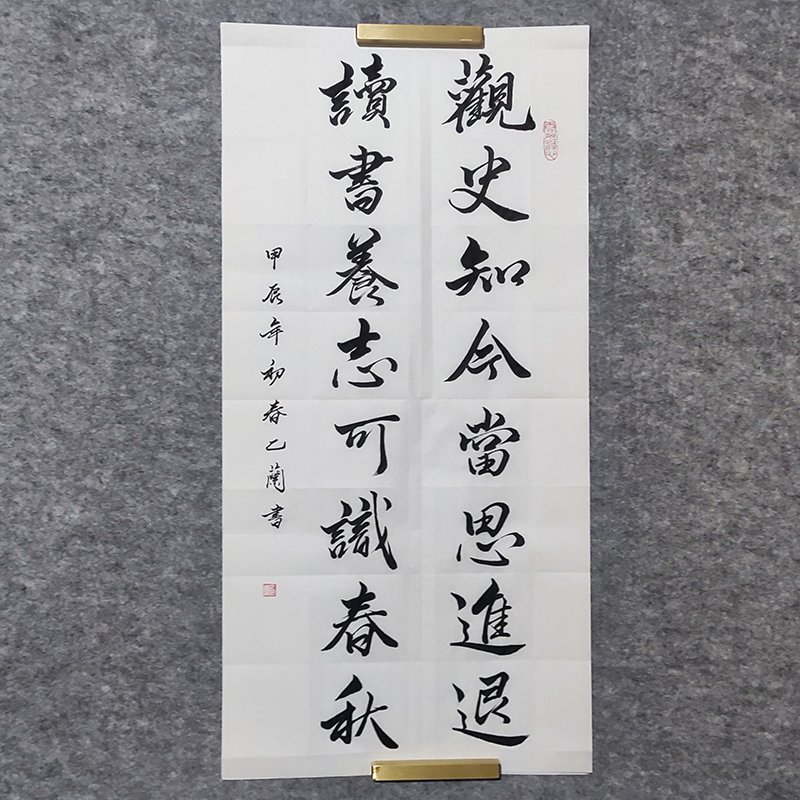 觀史知今當思進退
讀書養志可識春秋
甲辰年初春乙蘭書